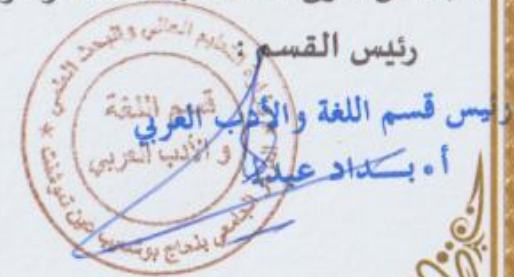 رئيس القسم :
رئيس قسم اللغة والأدب العربي
أ. بـــداد
وزارة التعليم العالي والبحث العلمي
قسم اللغة
و الأدب العربي
المركز الجامعي بلحاج بوشعيب عين تموشنت